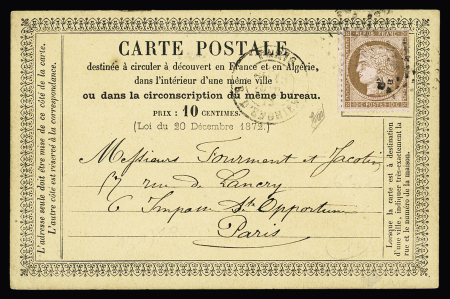 CARTE POSTALE
destinée à circuler à découvert en France et en Algérie,
dans l'intérieur d'une même ville
ou dans la circonscription du même bureau.
PRIX : 10 CENTIMES.
(Loi du 20 Décembre 1872.)
L'adresse seule doit être mise de ce côté de la carte.
L'autre côté est réservé à la correspondance.
REPUB FRANC
10 POSTES 10
Messieurs Fourment et Jacotin
17 rue de Lancry
6 Impasse Ste Opportune
Paris
Lorsque la carte est à destination
d'une ville, indiquer très-exactement la
rue et le numéro de la maison.